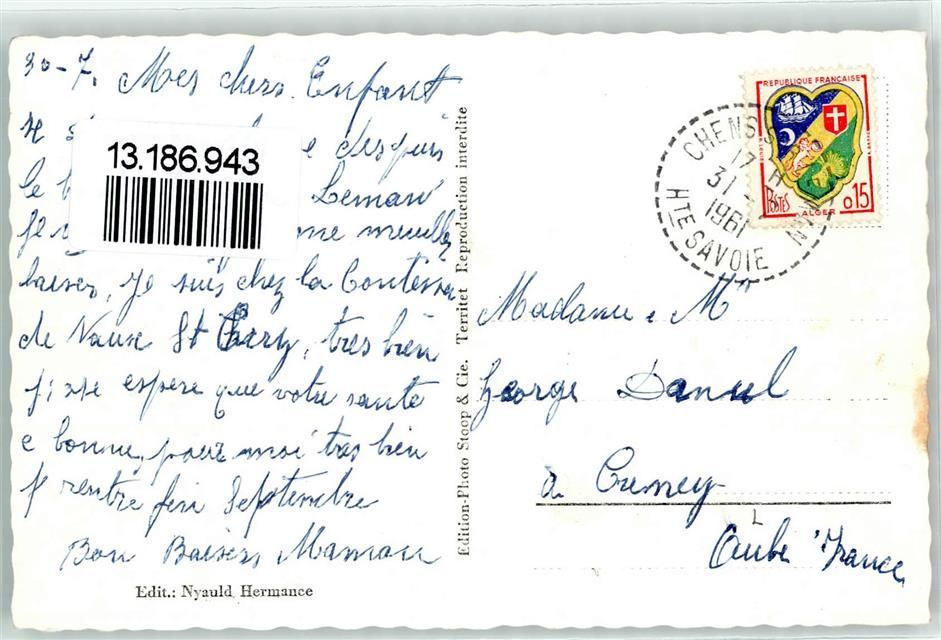 30-7. Mes chers Enfant
despuis
le Leman
baiser, Je suis chez la Contessa
de Vaux St tres bien
espere que votre santé
e bonne, pour moi tres bien
rentre fin Septembre
Bon Baisers Maman
13.186.943
Edit.: Nyauld Hermance
Edition-Photo Stoop & Cie. Territet Reproduction interdite
REPUBLIQUE FRANÇAISE
POSTES ALGER 0,15
CHENS
17 H
31
1961
HTE SAVOIE
Madame, Mr
George Danul
à Cumey
Aube France